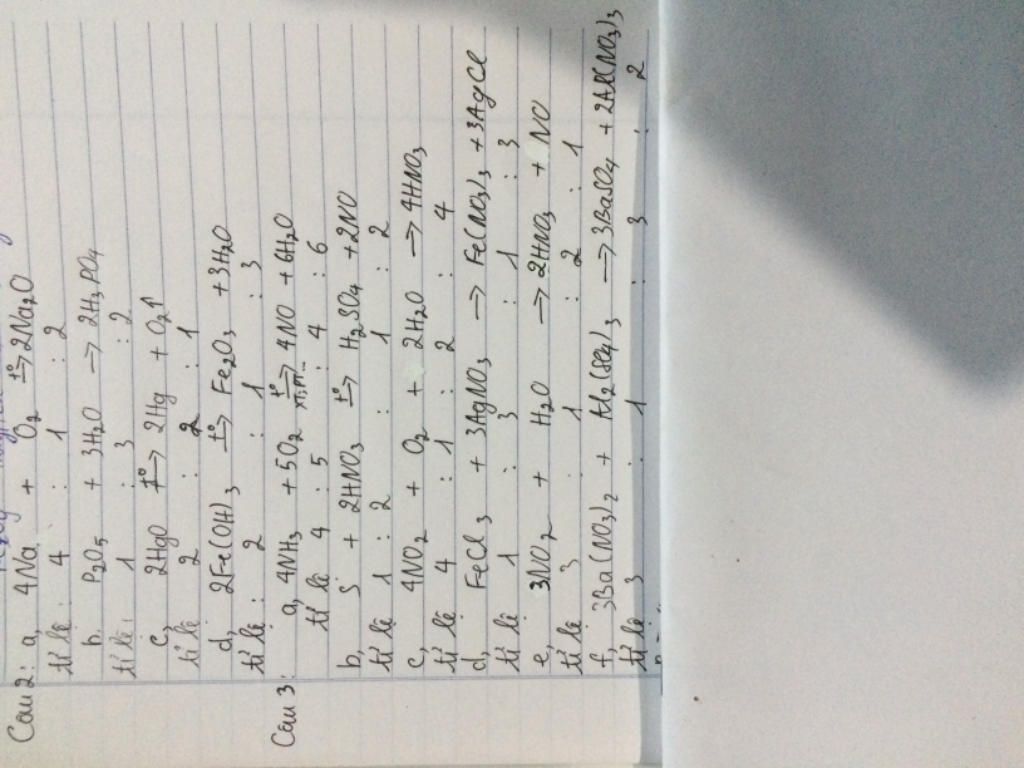 Câu 2: a, 4Na + O₂ t°→ 2Na₂O
tỉ lệ: 4 : 1 : 2
b, P₂O₅ + 3H₂O → 2H₃PO₄
tỉ lệ: 1 : 3 : 2
c, 2HgO t°→ 2Hg + O₂↑
tỉ lệ 2 : 2 : 1
d, 2Fe(OH)₃ t°→ Fe₂O₃ + 3H₂O
tỉ lệ: 2 : 1 : 3
Câu 3: a, 4NH₃ + 5O₂ t°→ 4NO + 6H₂O
tỉ lệ 4 : 5 : 4 : 6
b, S + 2HNO₃ t°→ H₂SO₄ + 2NO
tỉ lệ 1 : 2 : 1 : 2
c, 4NO₂ + O₂ + 2H₂O → 4HNO₃
tỉ lệ 4 : 1 : 2 : 4
d, FeCl₃ + 3AgNO₃ → Fe(NO₃)₃ + 3AgCl
tỉ lệ 1 : 3 : 1 : 3
e, 3NO₂ + H₂O → 2HNO₃ + NO
tỉ lệ 3 : 1 : 2 : 1
f, 3Ba(NO₃)₂ + Al₂(SO₄)₃ → 3BaSO₄ + 2Al(NO₃)₃
tỉ lệ 3 : 1 : 3 : 2